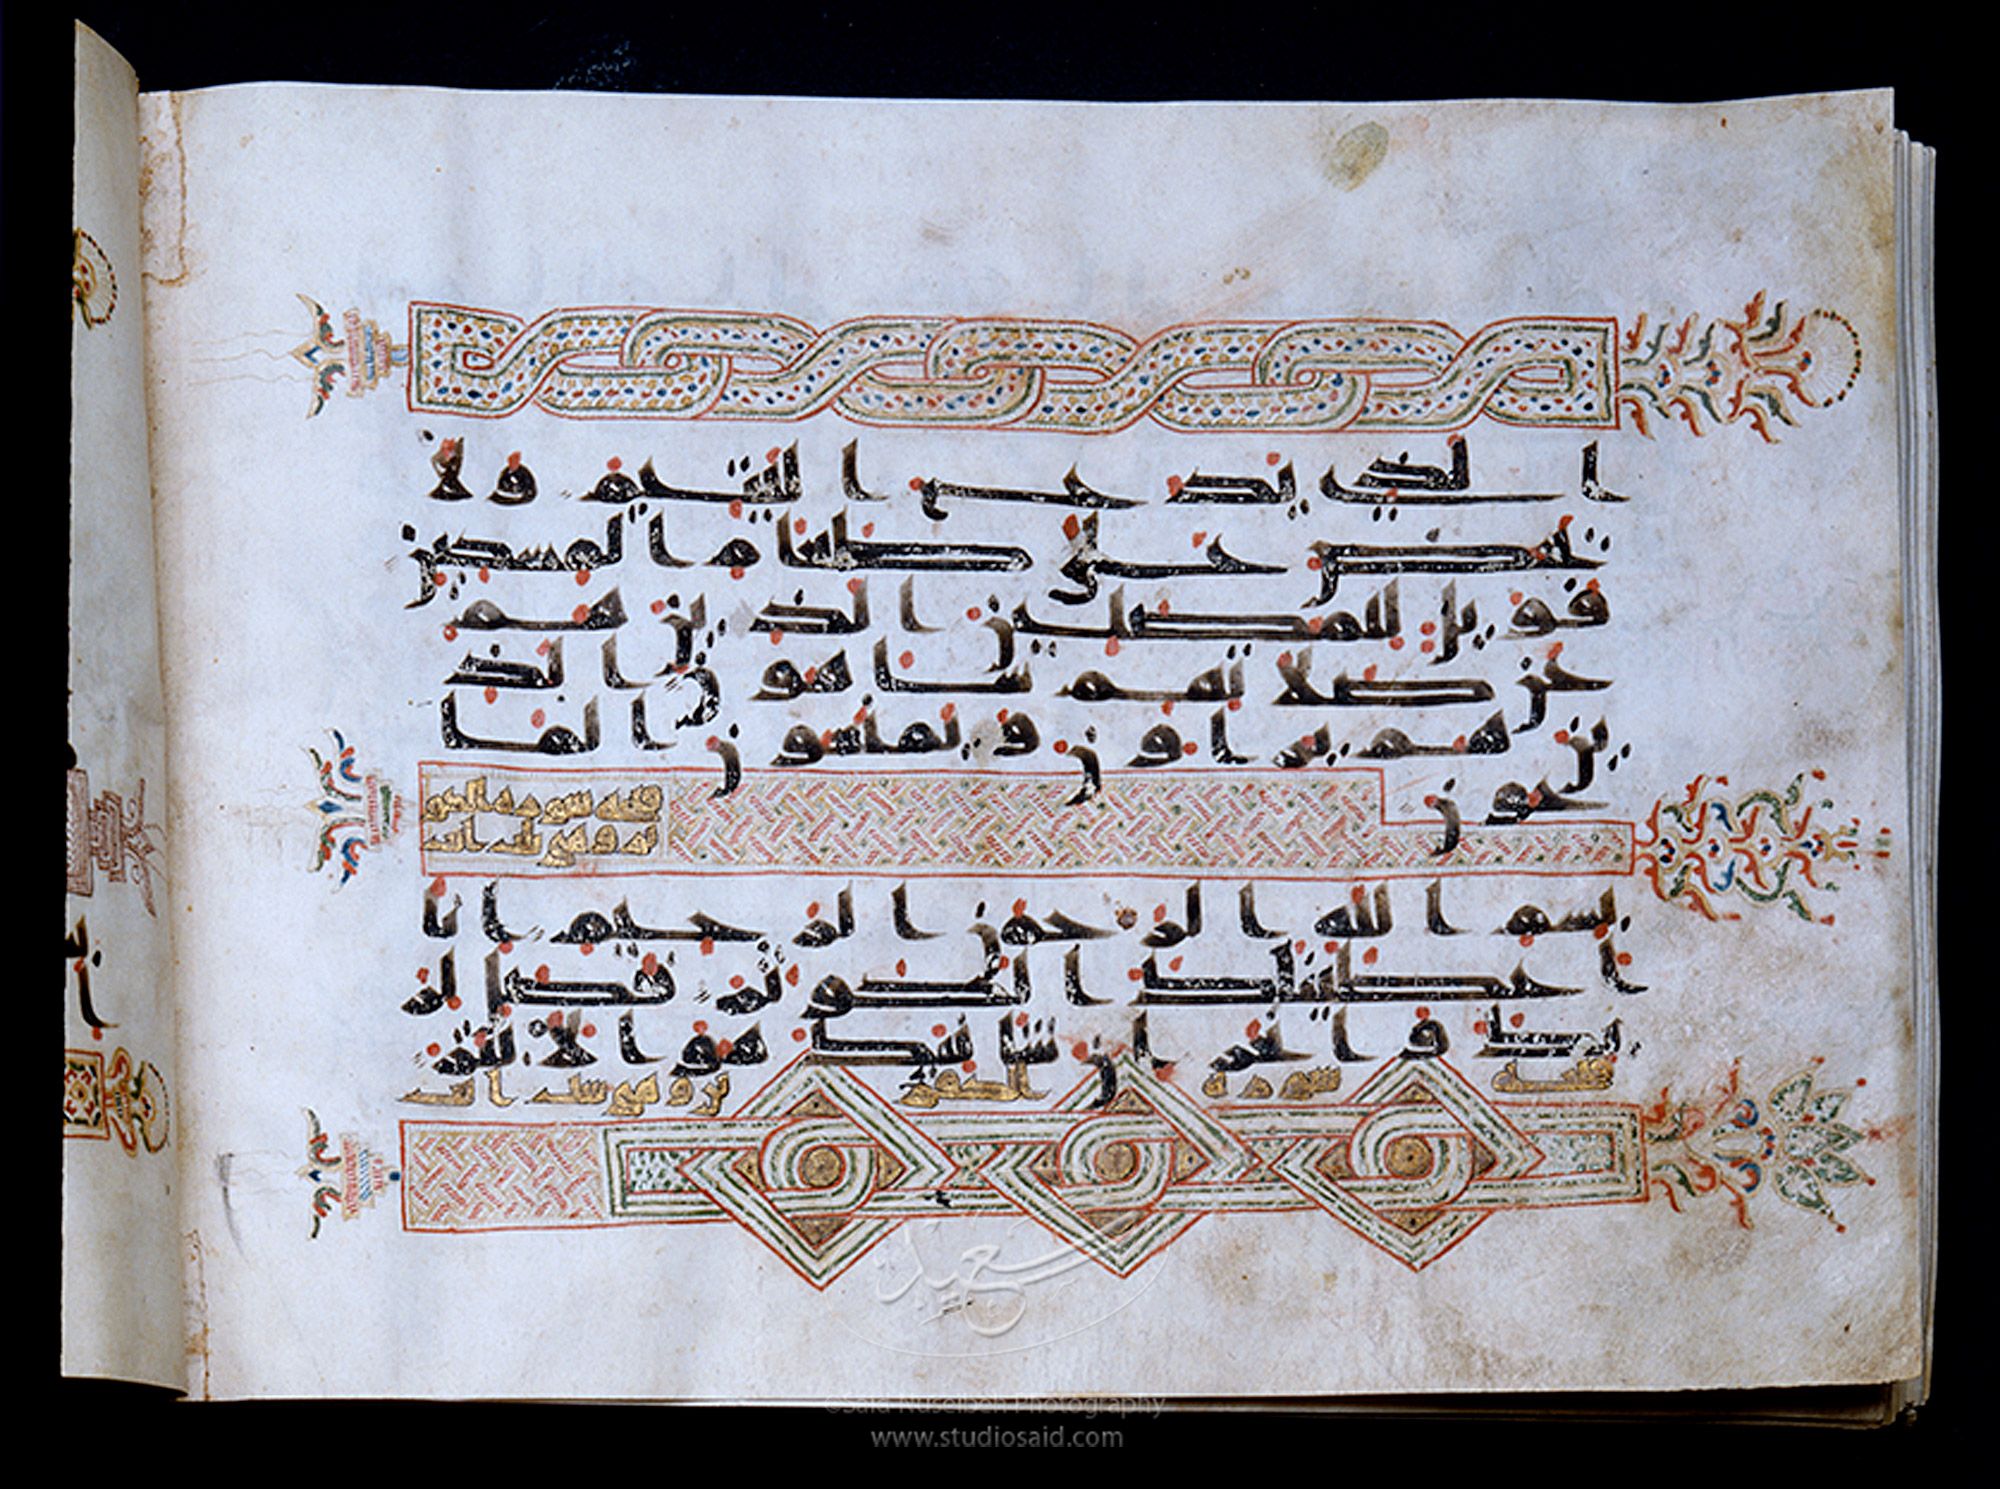 الذي يدع اليتيم ولا
يحض على طعام المسكين
فويل للمصلين الذين هم
عن صلاتهم ساهون الذ
ين هم يراون ويمنعون الما
عون
سوره الكو
ثر وهي ثلث ايات
بسم الله الرحمن الرحيم انا
اعطيناك الكوثر فصل لر
بك وانحر ان شانئك هو الابتر
سوره الكوثر وهي ايات
سعيد
©Said Nuseibeh Photography
www.studiosaid.com